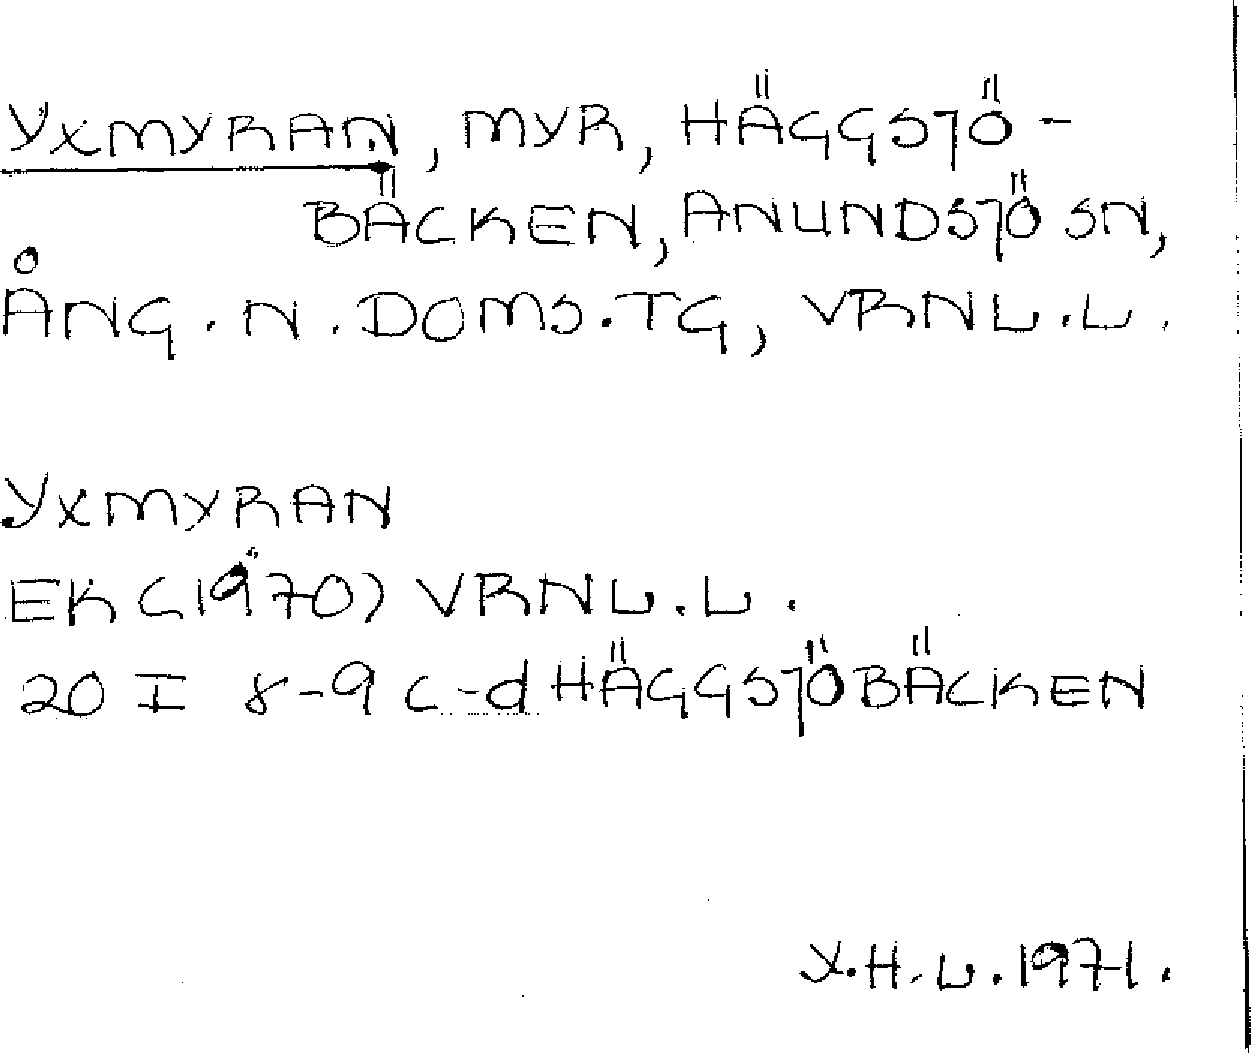 YXMYRAN, MYR, HÄGGSJÖ-
BÄCKEN, ANUNDSJÖ SN,
ÅNG. N. DOMS. TG, VRNL.L.
YXMYRAN
EK (1970) VRNL.L.
20 I 8-9 c-d HÄGGSJÖBÄCKEN
Y.H.L. 1971.